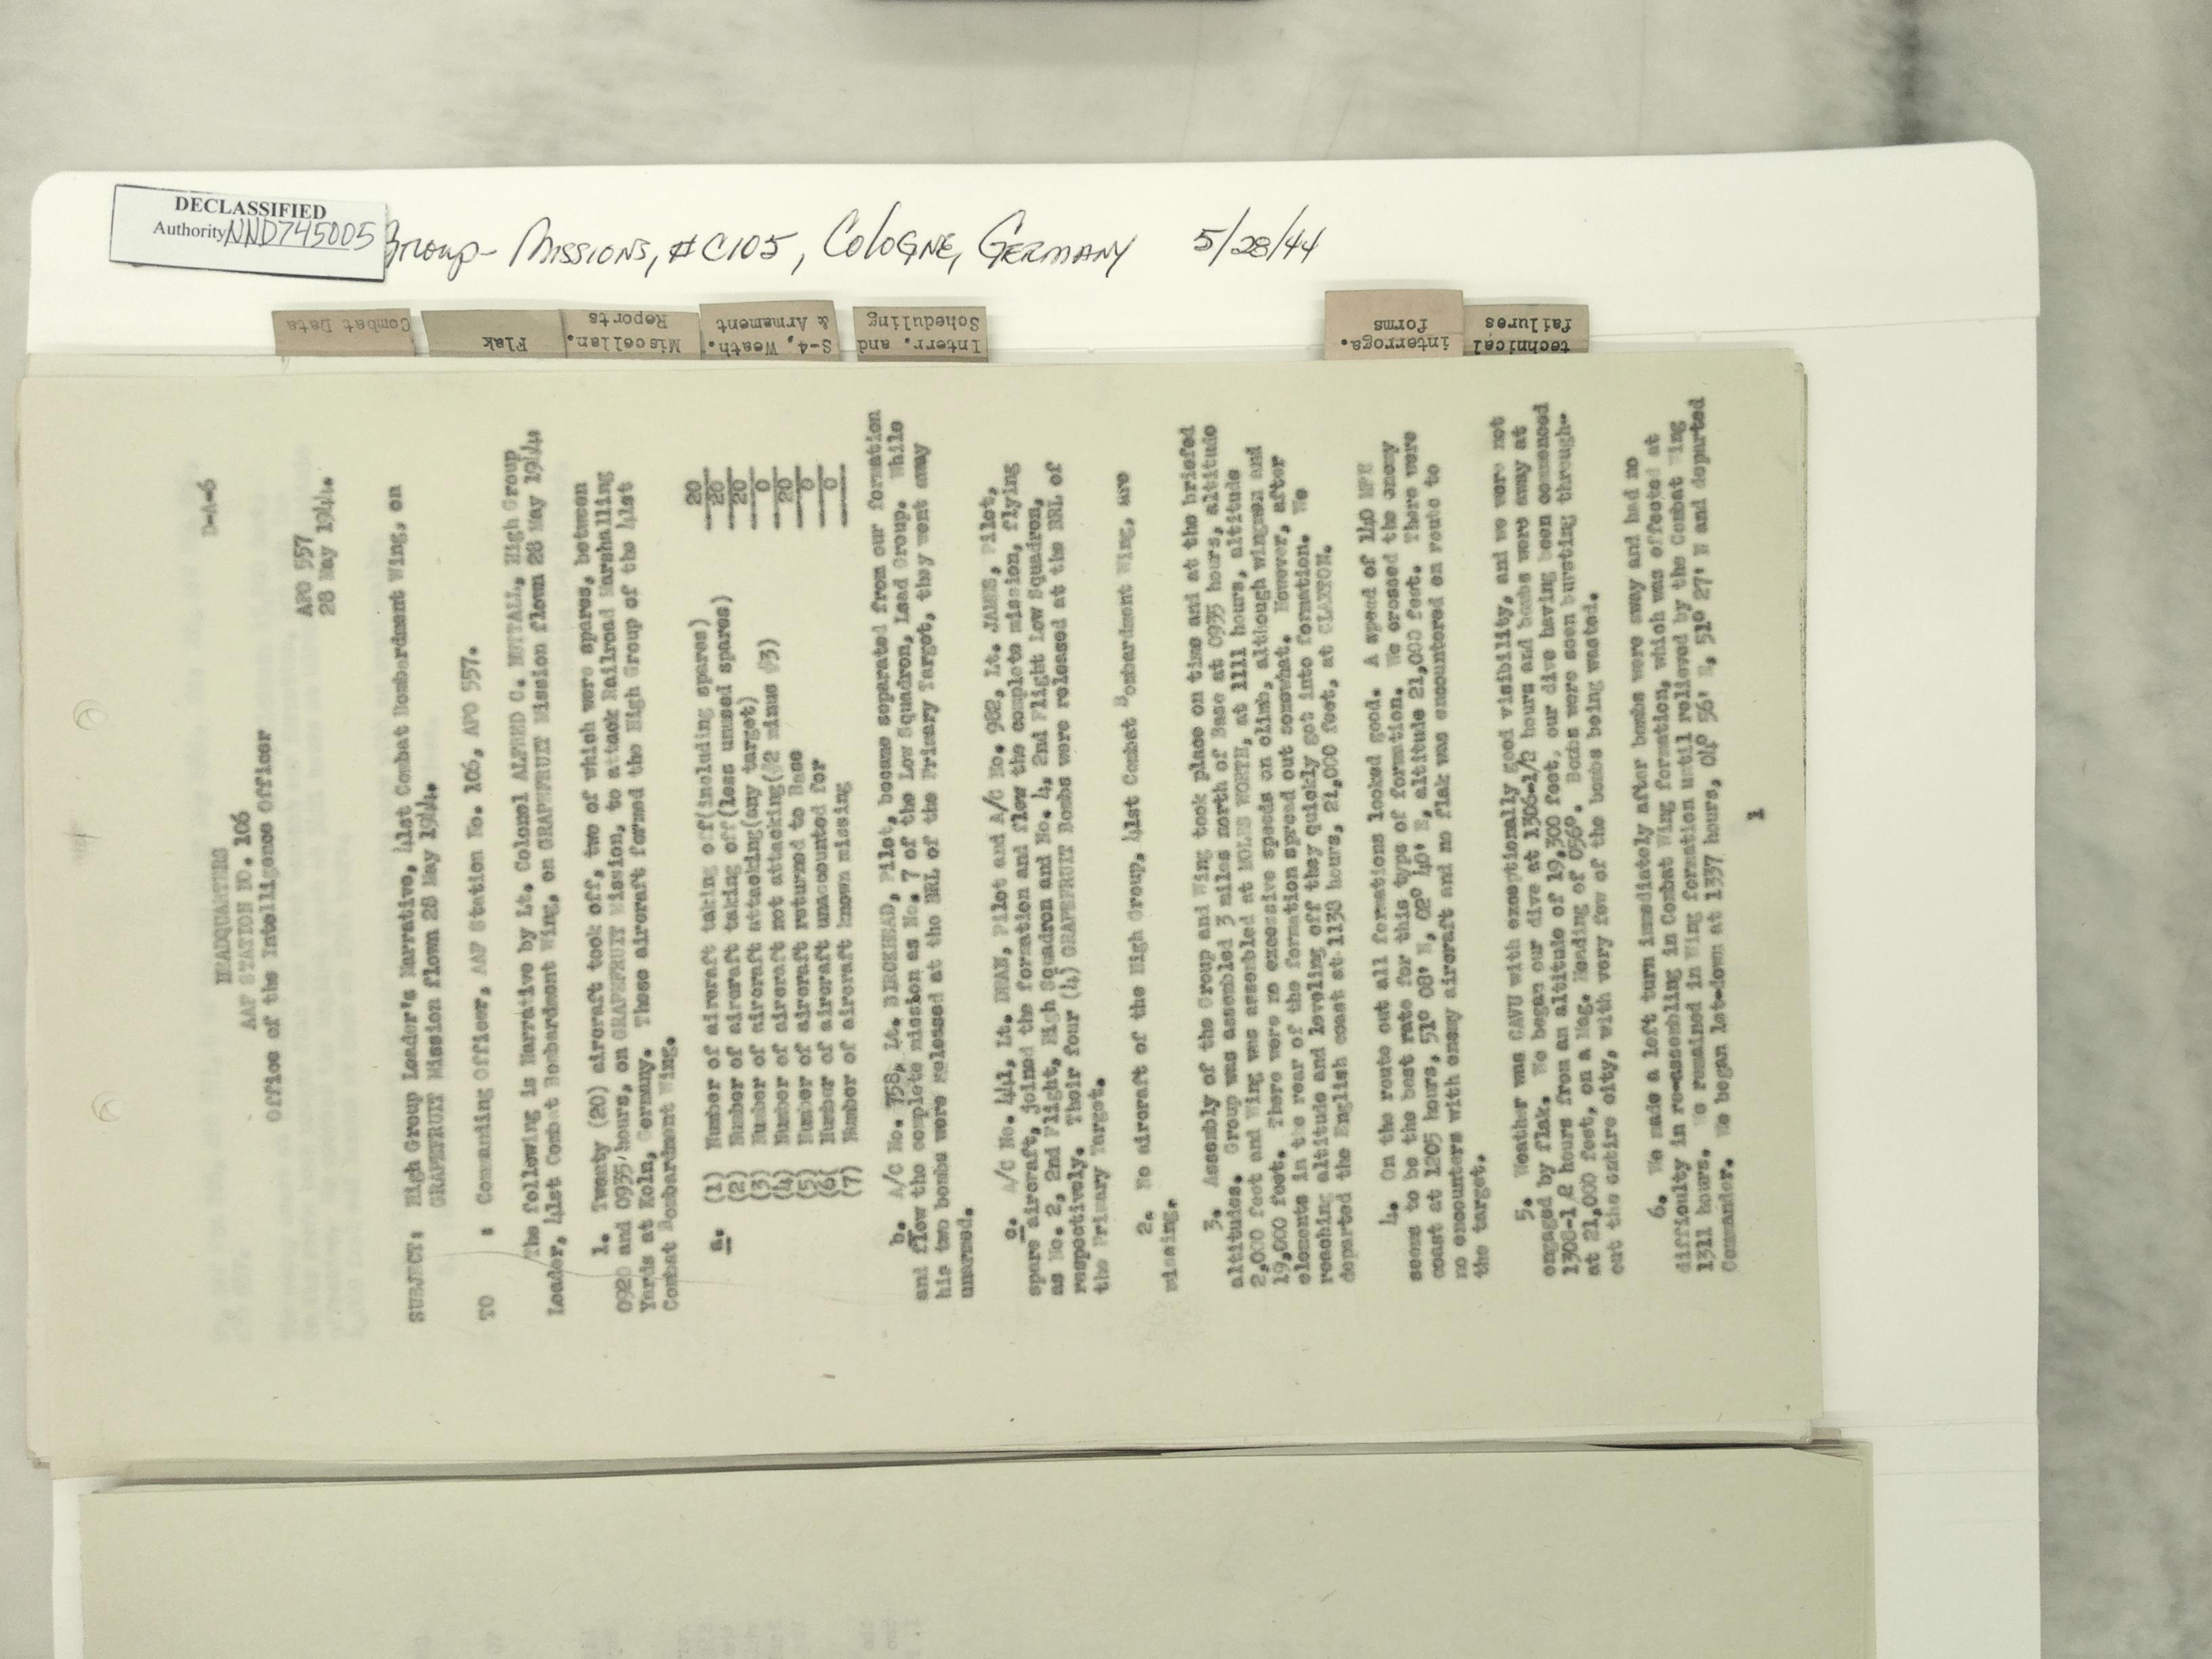 DECLASSIFIED
Authority NND745005
Group- Missions, #C105, Cologne, Germany 5/28/44
Combat Data
Flak
Miscellan.
Reports
S-4, Weath.
& Armament
Interr. and
Scheduling
interroga.
forms
technical
failures
D-A-6
HEADQUARTERS
AAF STATION NO. 106
Office of the Intelligence Officer
APO 557
28 May 1944.
SUBJECT: High Group Leader's Narrative, 41st Combat Bombardment Wing, on
GRAPEFRUIT Mission flown 28 May 1944.
TO : Commanding Officer, AAF Station No. 106, APO 557.
The following is Narrative by Lt. Colonel ALFRED C. NUTTALL, High Group
Leader, 41st Combat Bombardment Wing, on GRAPEFRUIT Mission flown 28 May 1944:
1. Twenty (20) aircraft took off, two of which were spares, between
0920 and 0935 hours, on GRAPEFRUIT Mission, to attack Railroad Marshalling
Yards at Koln, Germany. These aircraft formed the High Group of the 41st
Combat Bombardment Wing.
a. (1) Number of aircraft taking off(including spares) 20
(2) Number of aircraft taking off(less unused spares) 20
(3) Number of aircraft attacking(any target) 20
(4) Number of aircraft not attacking(#2 minus #3) 0
(5) Number of aircraft returned to Base 20
(6( Number of aircraft unaccounted for 0
(7) Number of aircraft known missing 0
b. A/C No. 758, Lt. BIRCKHEAD, Pilot, became separated from our formation
and flew the complete mission as No. 7 of the Low Squadron, Lead Group. While
his two bombs were released at the BRL of the Primary Target, they went away
unarmed.
c. A/C No. 441, Lt. DEAN, Pilot and A/C No. 982, Lt. JAMES, Pilot,
spare aircraft, joined the formation and flew the complete mission, flying
as No. 2, 2nd Flight, High Squadron and No. 4, 2nd Flight Low Squadron,
respectively. Their four (4) GRAPEFRUIT Bombs were released at the BRL of
the Primary Target.
2. No aircraft of the High Group, 41st Combat Bombardment Wing, are
missing.
3. Assembly of the Group and Wing took place on time and at the briefed
altitudes. Group was assembled 3 miles north of Base at 0935 hours, altitude
2,000 feet and Wing was assembled at MOLES WORTH, at 1111 hours, altitude
19,000 feet. There were no excessive speeds on climb, although wingmen and
elements in the rear of the formation spread out somewhat. However, after
reaching altitude and leveling off they quickly got into formation. We
departed the English coast at 1138 hours, 21,000 feet, at CLAXTON.
4. On the route out all formations looked good. A speed of 140 MPH
seems to be the best rate for this type of formation. We crossed the enemy
coast at 1205 hours, 51° 08' N, 02° 40' E, altitude 21,000 feet. There were
no encounters with enemy aircraft and no flak was encountered en route to
the target.
5. Weather was CAVU with exceptionally good visibility, and we were not
engaged by flak. We began our dive at 1306-1/2 hours and bombs were away at
1308-1/2 hours from an altitude of 19,300 feet, our dive having been commenced
at 21,000 feet, on a Mag. Heading of 056°. Bombs were seen bursting through-
out the entire city, with very few of the bombs being wasted.
6. We made a left turn immediately after bombs were away and had no
difficulty in re-assembling in Combat Wing formation, which was effected at
1311 hours. We remained in Wing formation until relieved by the Combat Wing
Commander. We began let-down at 1337 hours, 04° 56' E, 51° 27' N and departed
1